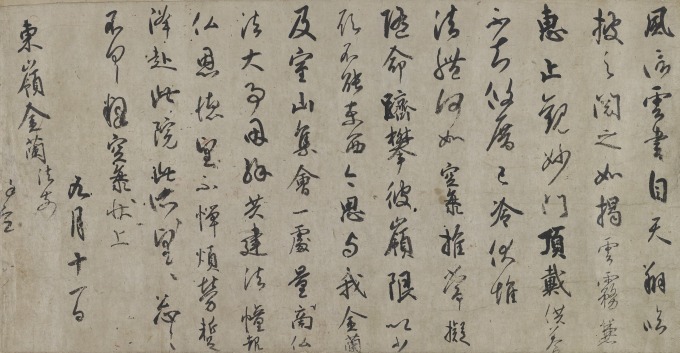 風信雲書自天翔臨
披之閱之如揭雲霧兼
惠止觀妙門頂戴供養
不知攸厝已冷伏惟
法體何如空海推常擬
隨命躋攀彼嶺限以少
願不能東西今思与我金蘭
及室山集會一處量商仏
法大事因緣共建法幢報
仏恩德望不憚煩勞蹔
降赴此院此所望々忩々
不具釋空海狀上
九月十一日
東嶺金蘭法前